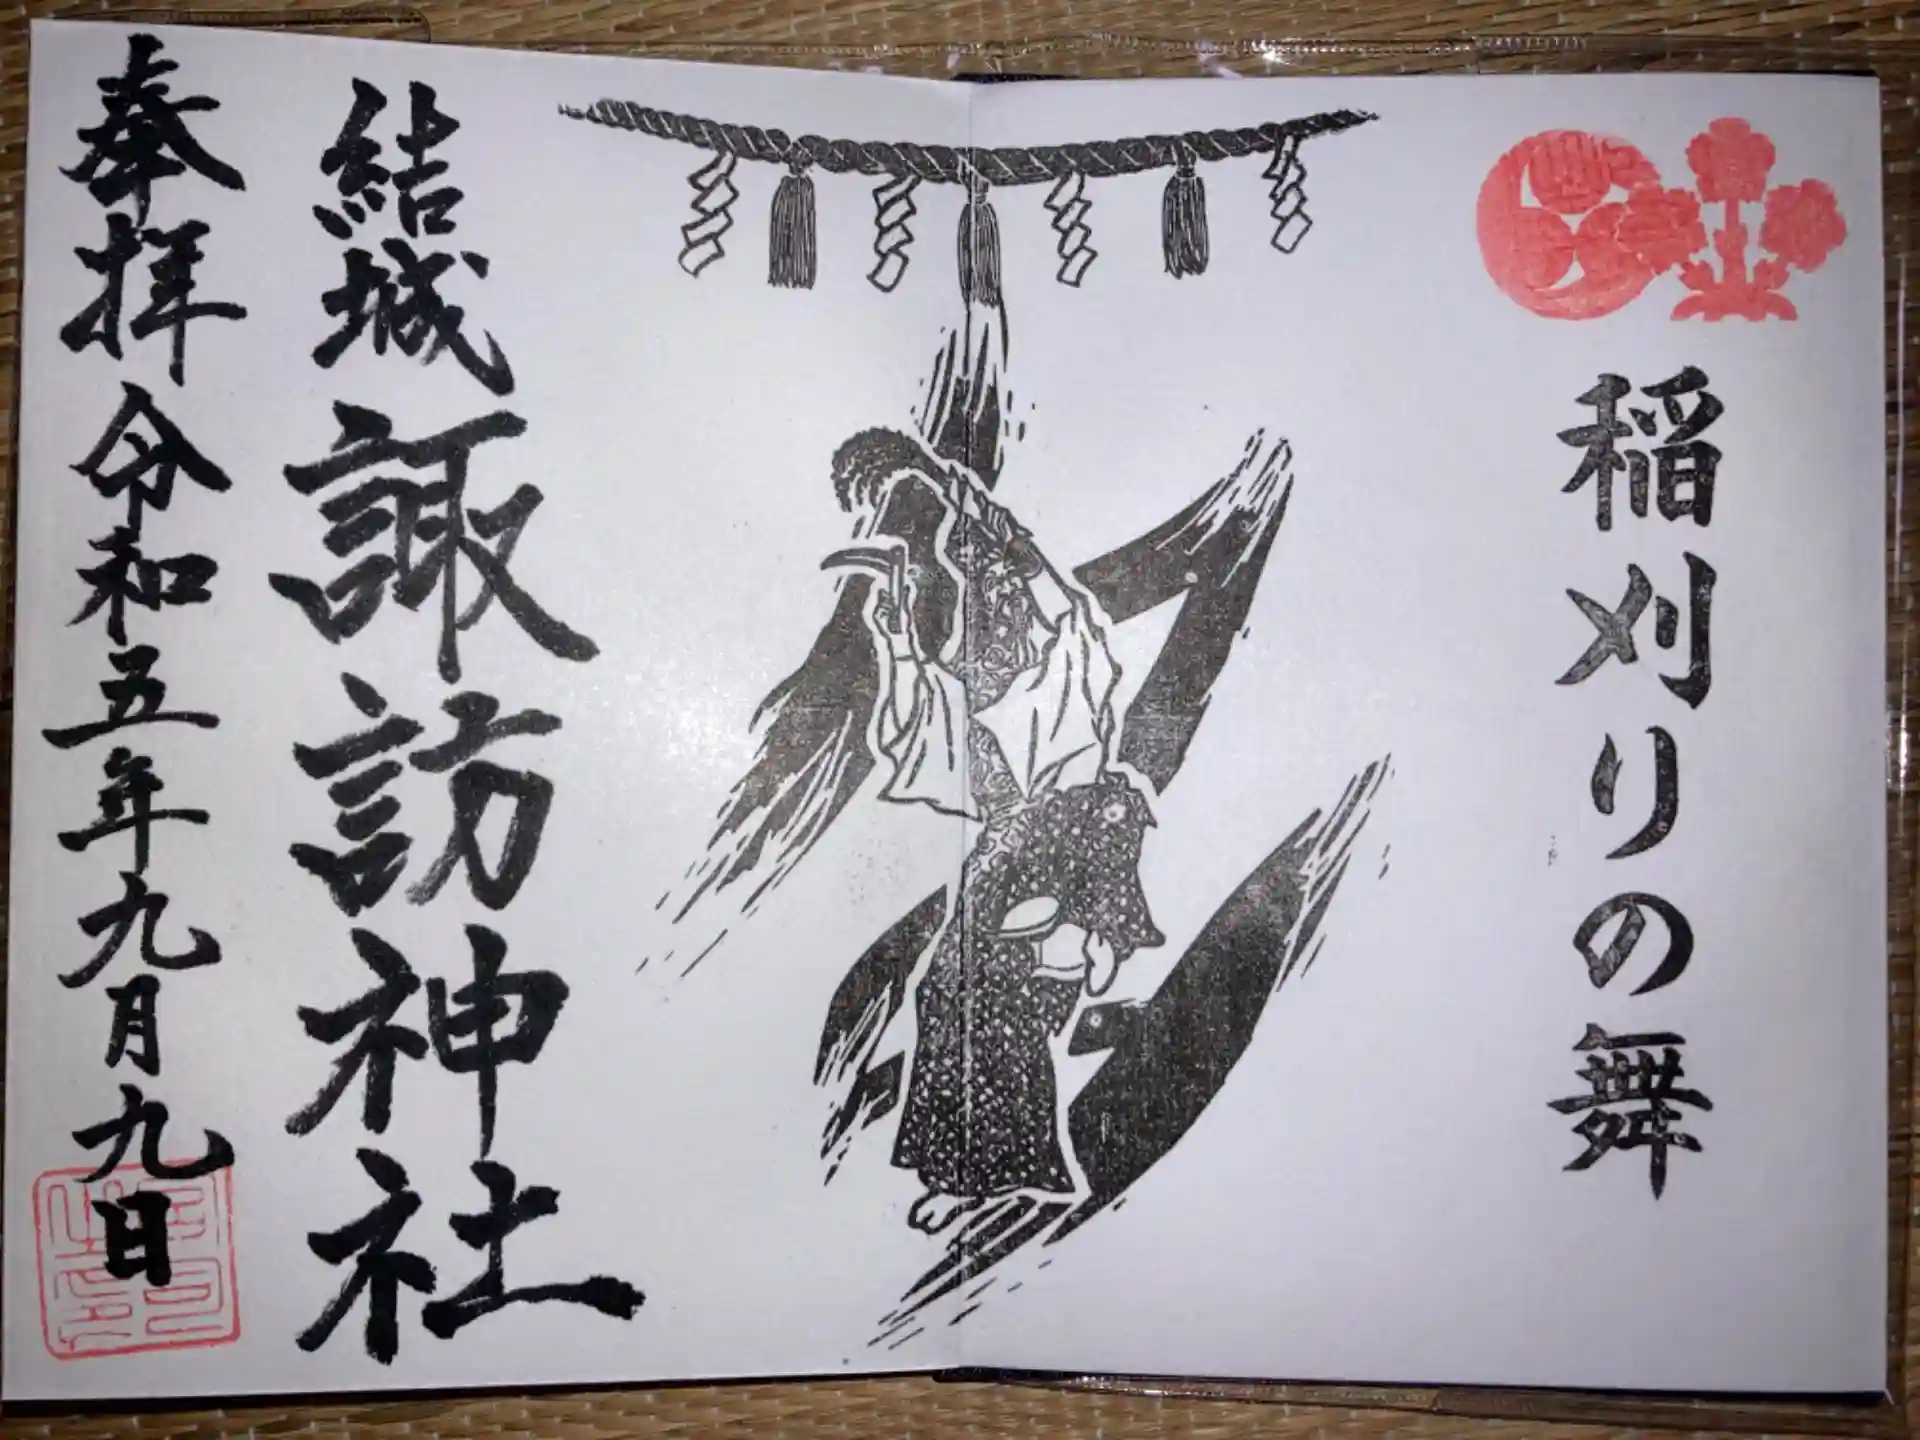 稲刈りの舞
結城諏訪神社
奉拝 令和五年九月九日